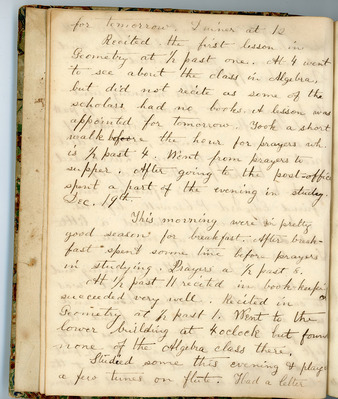 for tomorrow. Dinner at 12
Recited the first lesson in
Geometry at ½ past one. At 4 went
to see about the class in Algebra,
but did not recite as some of the
scholars had no books. A lesson was
appointed for tomorrow. Took a short
walk before the hour for prayers wh.
is ½ past 4. Went from prayers to
supper. After going to the post-office
spent a part of the evening in study
Dec. 19th.
This morning were in pretty
good season for breakfast. After break-
fast spent some time before prayers
in studying. Prayers a ½ past 8.
At ½ past 11 recited in book-keeping
succeeded very well. Recited in
Geometry at ½ past 1. Went to the
lower building at 4 oclock but found
none of the Algebra class there.
Studied some this evening & played
a few tunes on flute. Had a letter